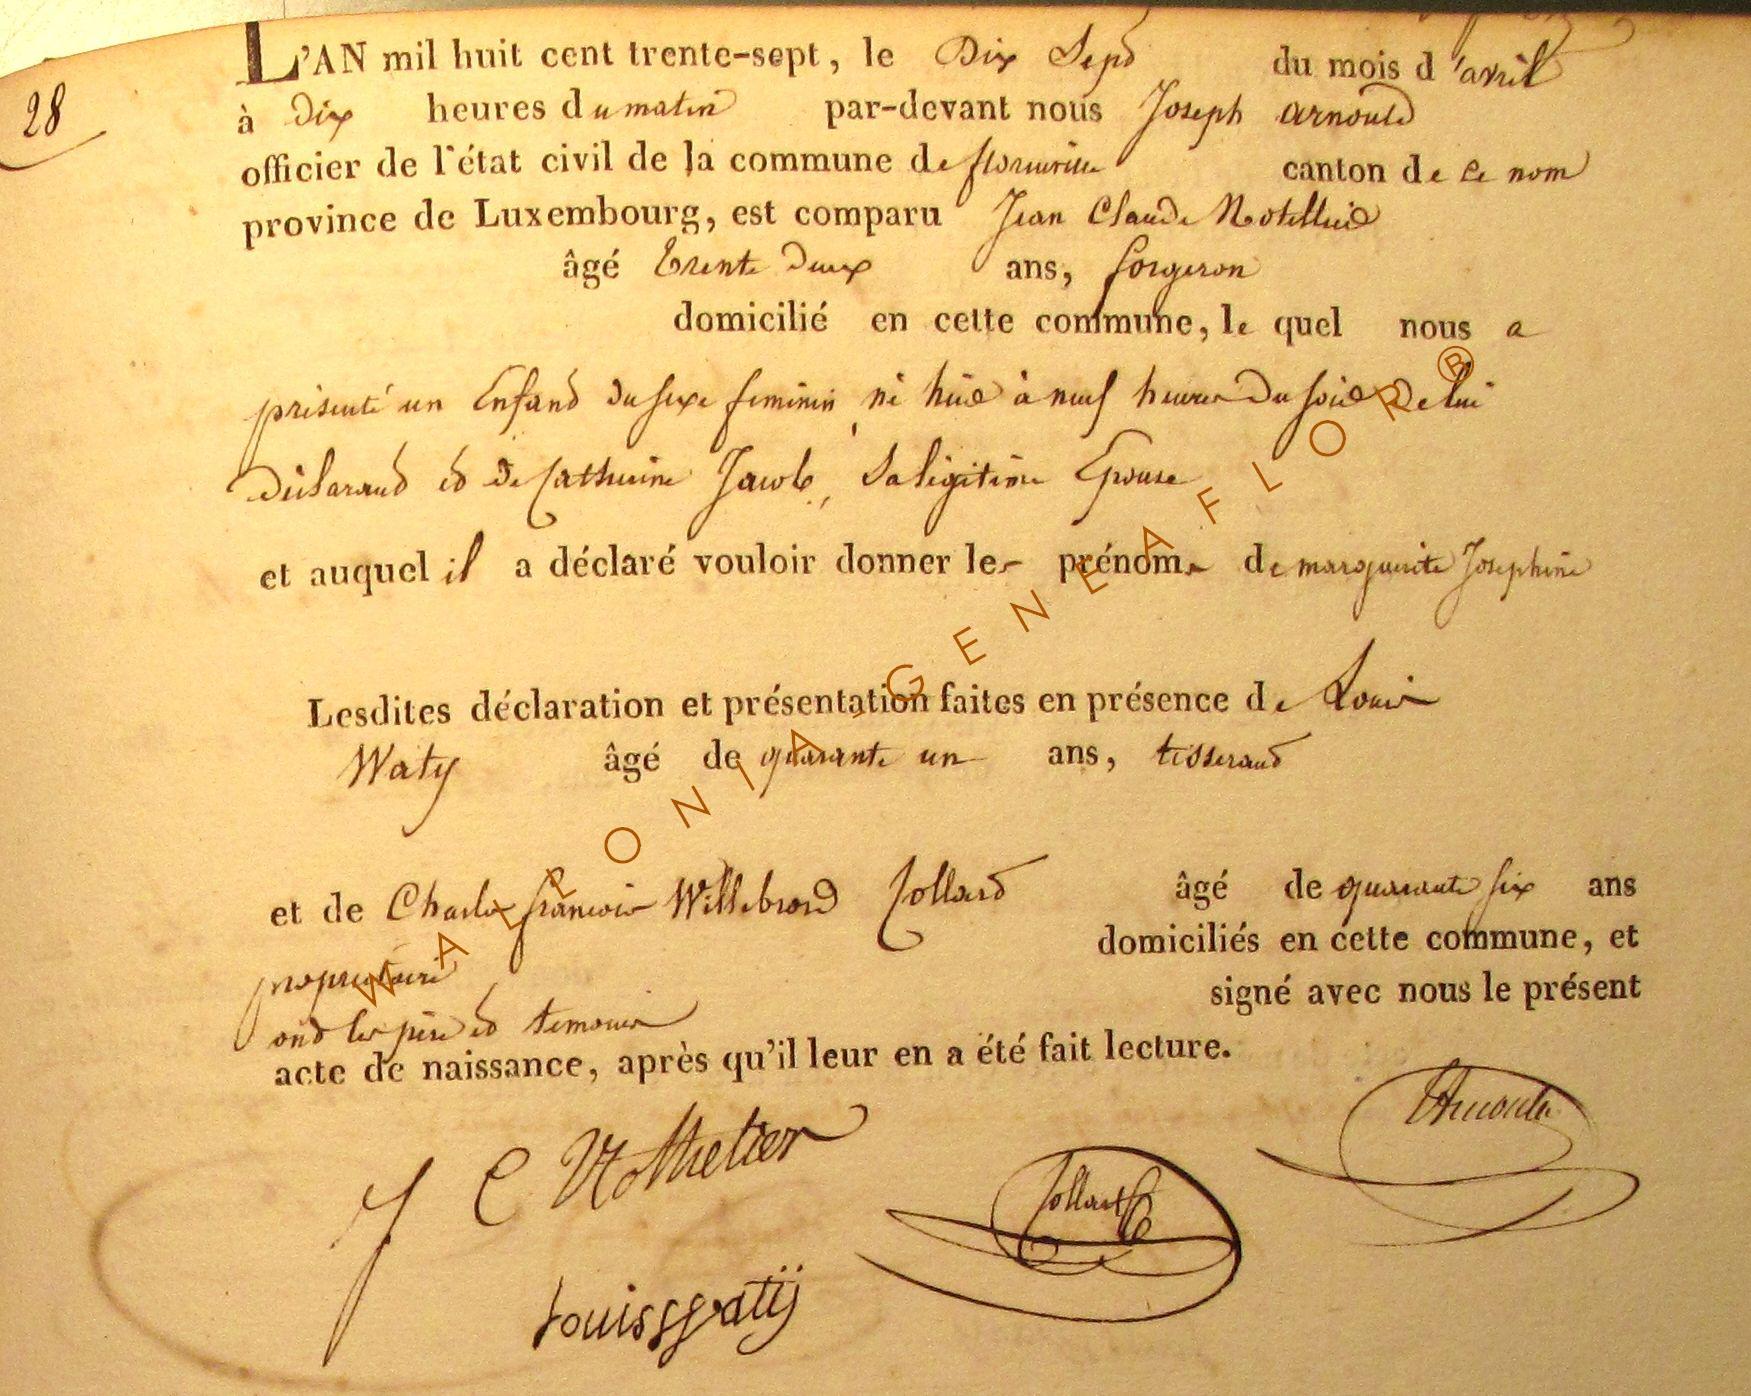 28
L'AN mil huit cent trente-sept, le Dix Sept du mois d'avril
à Dix heures du matin par-devant nous Joseph arnould
officier de l'état civil de la commune de florenville canton de ce nom
province de Luxembourg, est comparu Jean Claude
âgé trente Deux ans, forgeron
domicilié en cette commune, le quel nous a
présenté un Enfand du sexe feminin né hier à neuf heures du soir de lui
déclarand et de Catherine Jacob, Sa légitime Epouse
et auquel il a déclaré vouloir donner les prénoms de marguerite Josephine
Lesdites déclaration et présentation faites en présence de Louis
Waty âgé de quarante un ans, tisserand
et de Charles françois Willebrord Collard âgé de quarante six ans
domiciliés en cette commune, et
propriétaire
signé avec nous le présent
ont les père et temoins
acte de naissance, après qu'il leur en a été fait lecture.
J C Nothelier
Collard
Arnould
Louis Watij
WALLONIA-GENEAFLOR®